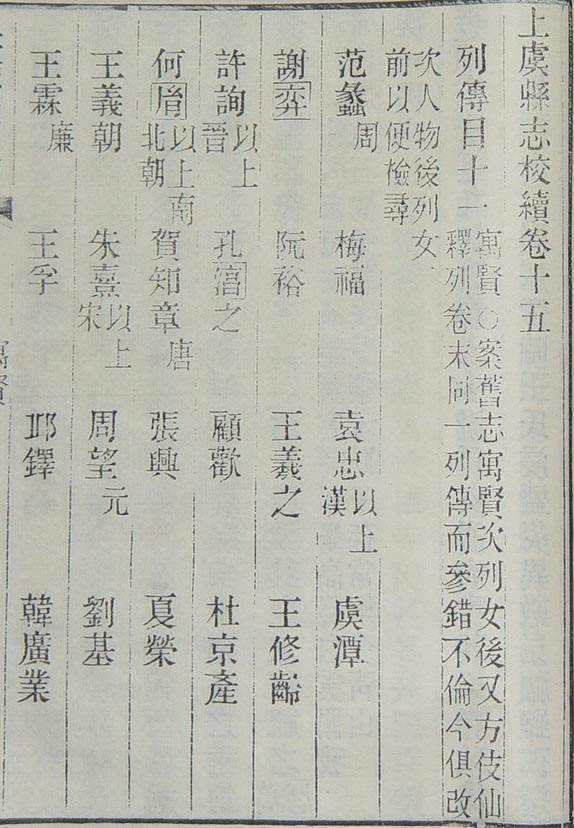 上虞縣志校續卷十五
列傳目十一 寓賢○案舊志寓賢次列女後又方伎仙
釋列卷末同一列傳而參錯不倫今俱改
次人物後列女
前以便檢尋
范蠡周 梅福 袁忠以上漢 虞潭
謝弈 阮裕 王羲之 王修齡
許詢以上晉 孔淯之 顧歡 杜京產
何胤以上南北朝 賀知章唐 張興 夏榮
王義朝 朱熹以上宋 周望元 劉基
王霖廉 王孚 邛鐸 韓廣業
寓賢